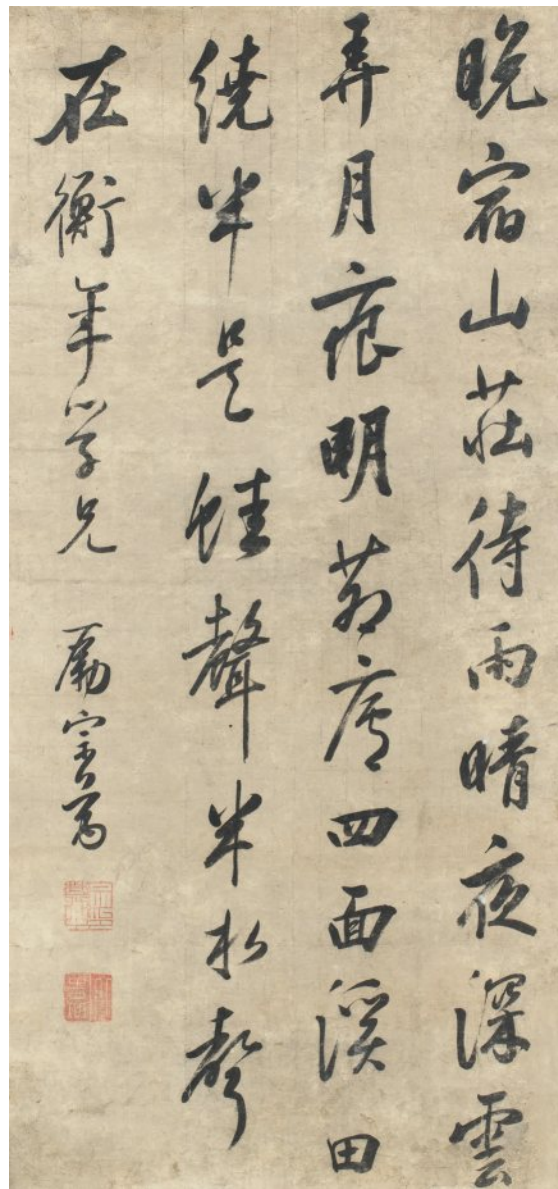 晚宿山莊待雨晴夜深雲
弄月痕明茆廬四面溪田
繞半是蛙聲半水聲
在衡年學兄
勵宗萬